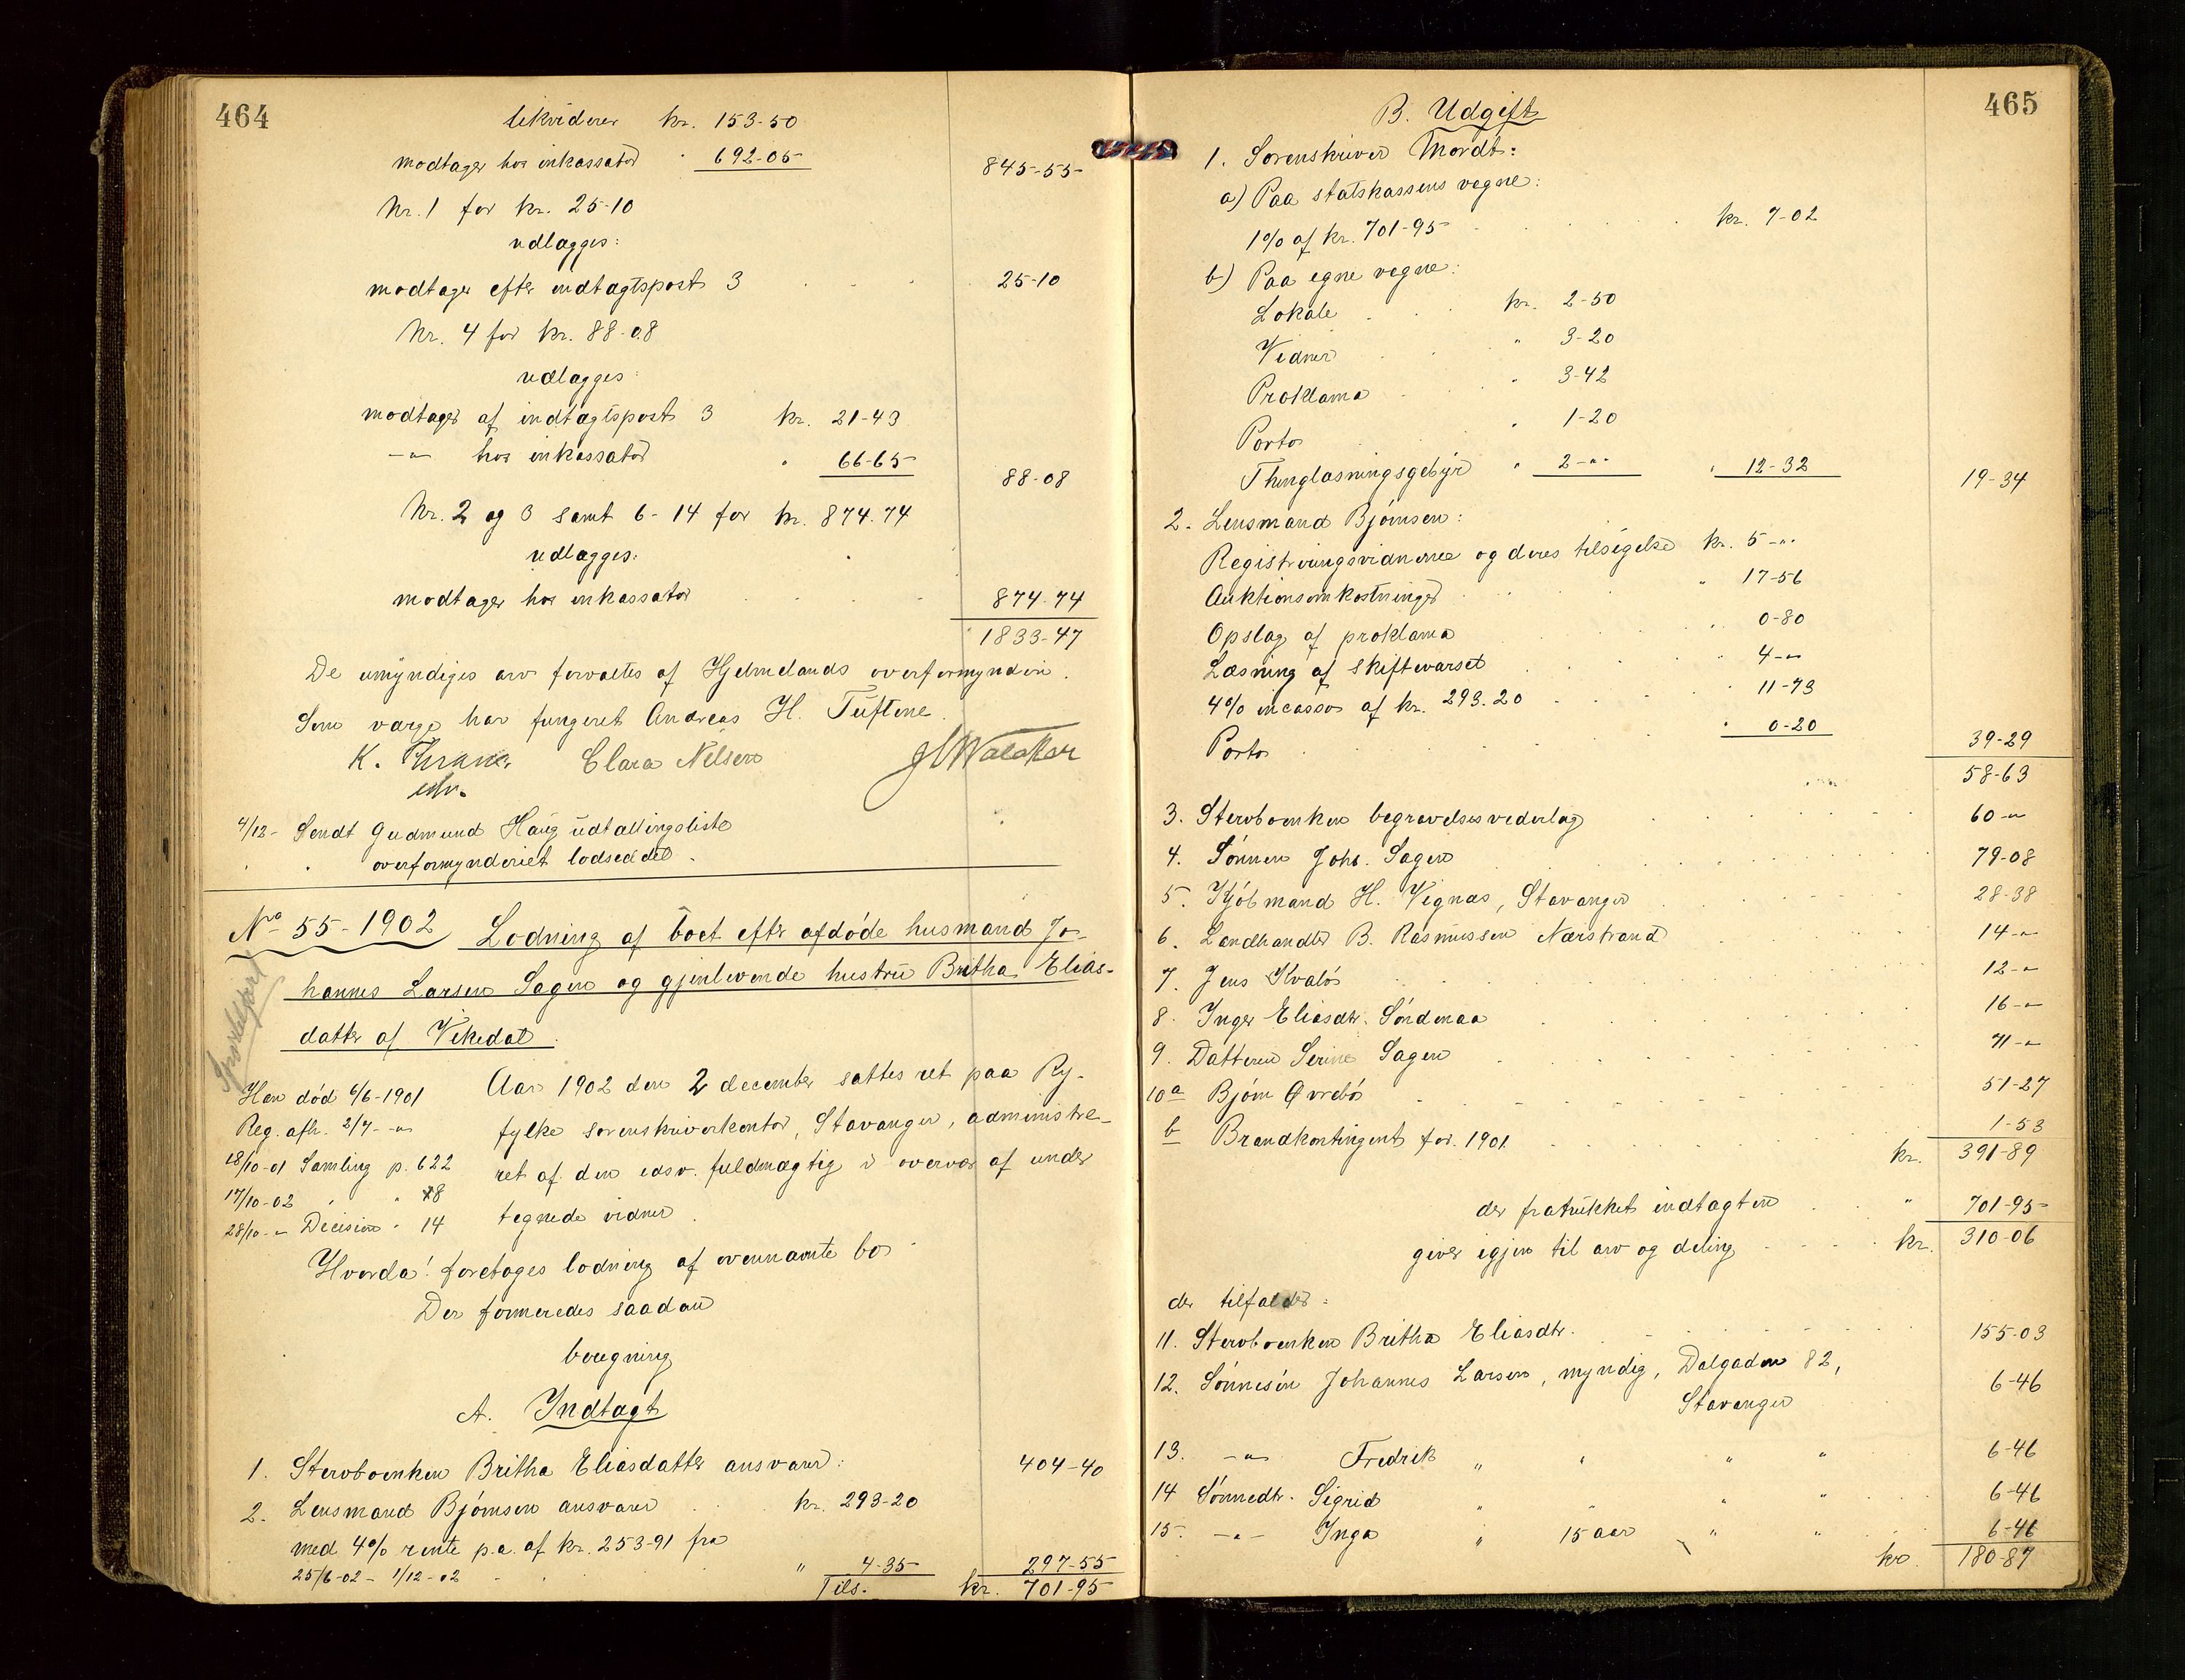 464
likviderer kr. 153-50
modtager hos inkassator " 692-05 845-55
Nr. 1 for kr. 25-10
udlægges:
modtager efter indtægtspost 3 25-10
Nr. 4 for kr. 88-08
udlægges:
modtager af indtægtspost 3 kr. 21-43
-"- hos inkassator " 66-65 88-08
Nr. 2 og 3 samt 6-14 for kr. 874.74
udlægges:
modtager hos inkassator 874.74
1833-47
De umyndiges arv forvaltes af Hjelmelands overformynderi.
Som værge har fungeret Andreas H. Tuftene.
K. Clara Nilsen
4/12- Sendt Gudmund Haug udtællingsliste
" " overformynderiet lodseddel.
No 55-1902 Lodning af boet efter afdøde husmand Jo-
hannes Larsen Sagen og gjenlevende hustru Britha Elias-
datter af Vikedal.
Han død 6/6-1901
Reg. afh. 2/7- -"-
18/10-01 Samling p. 622
17/10-02 " " 8
28/10-" Decision " 14
Aar 1902 den 2 december sattes ret paa Ry-
fylke sorenskriverkontor, Stavanger, administre-
ret af den edsv. fuldmægtig i overvær af under
tegnede vidner.
Hvorda! foretoges lodning af ovennævnte bo.
Der formeredes saadan
beregning
A. Indtægt
1. Stervboenken Britha Eliasdatter ansvarer: 404-40
2. Lensmand Bjørnsen ansvarer kr. 293-20
med 4% rente p.a. af kr. 253-91 fra
25/6-02 - 1/12-02 " 4-35 297-55
Tils. kr. 701-95
465
B. Udgift
1. Sorenskriver Mordt:
a) Paa statskassens vegne:
1% af kr. 701-95 kr. 7-02
b) Paa egne vegne:
Lokale kr. 2-50
Vidner " 3-20
Proklama " 3-42
Porto " 1-20
Thinglæsningsgebyr " 2-" " 12-32 19-34
2. Lensmand Bjørnsen:
Registreringsvidnerne og deres tilsigelse kr. 5-"
Auktionsomkostninger " 17-56
Opslag af proklama " 0-80
Læsning af skiftevarsel " 4-"
4% incasso af kr. 293.20 " 11-73
Porto " 0-20 39-29
58-63
3. Stervboenken begravelsesvederlag 60-"
4. Sønnen Johs. Sagen 79-08
5. Kjøbmand H. Vignæs, Stavanger 28-38
6. Landhandler B. Rasmussen Nærstrand 14-"
7. Jens Kvaløs 12-"
8. Inger Eliasdtr. Søndenaa 16-"
9. Datteren Serine Sagen 71-"
10a Bjørn Øvrebø 51-27
b Brandkontingent for 1901 1-53
kr. 391-89
der fratrukket indtægten " 701-95
giver igjen til arv og deling kr. 310-06
der tilfalder:
11. Stervboenken Britha Eliasdtr. 155-03
12. Sønnesøn Johannes Larsen, myndig, Dalgaden 82, 6-46
Stavanger
13. -"- Fredrik " " " " 6-46
14 Sønnedtr. Sigrid " " " " 6-46
15. -"- Inga " 15 aar " " 6-46
kr. 180-87